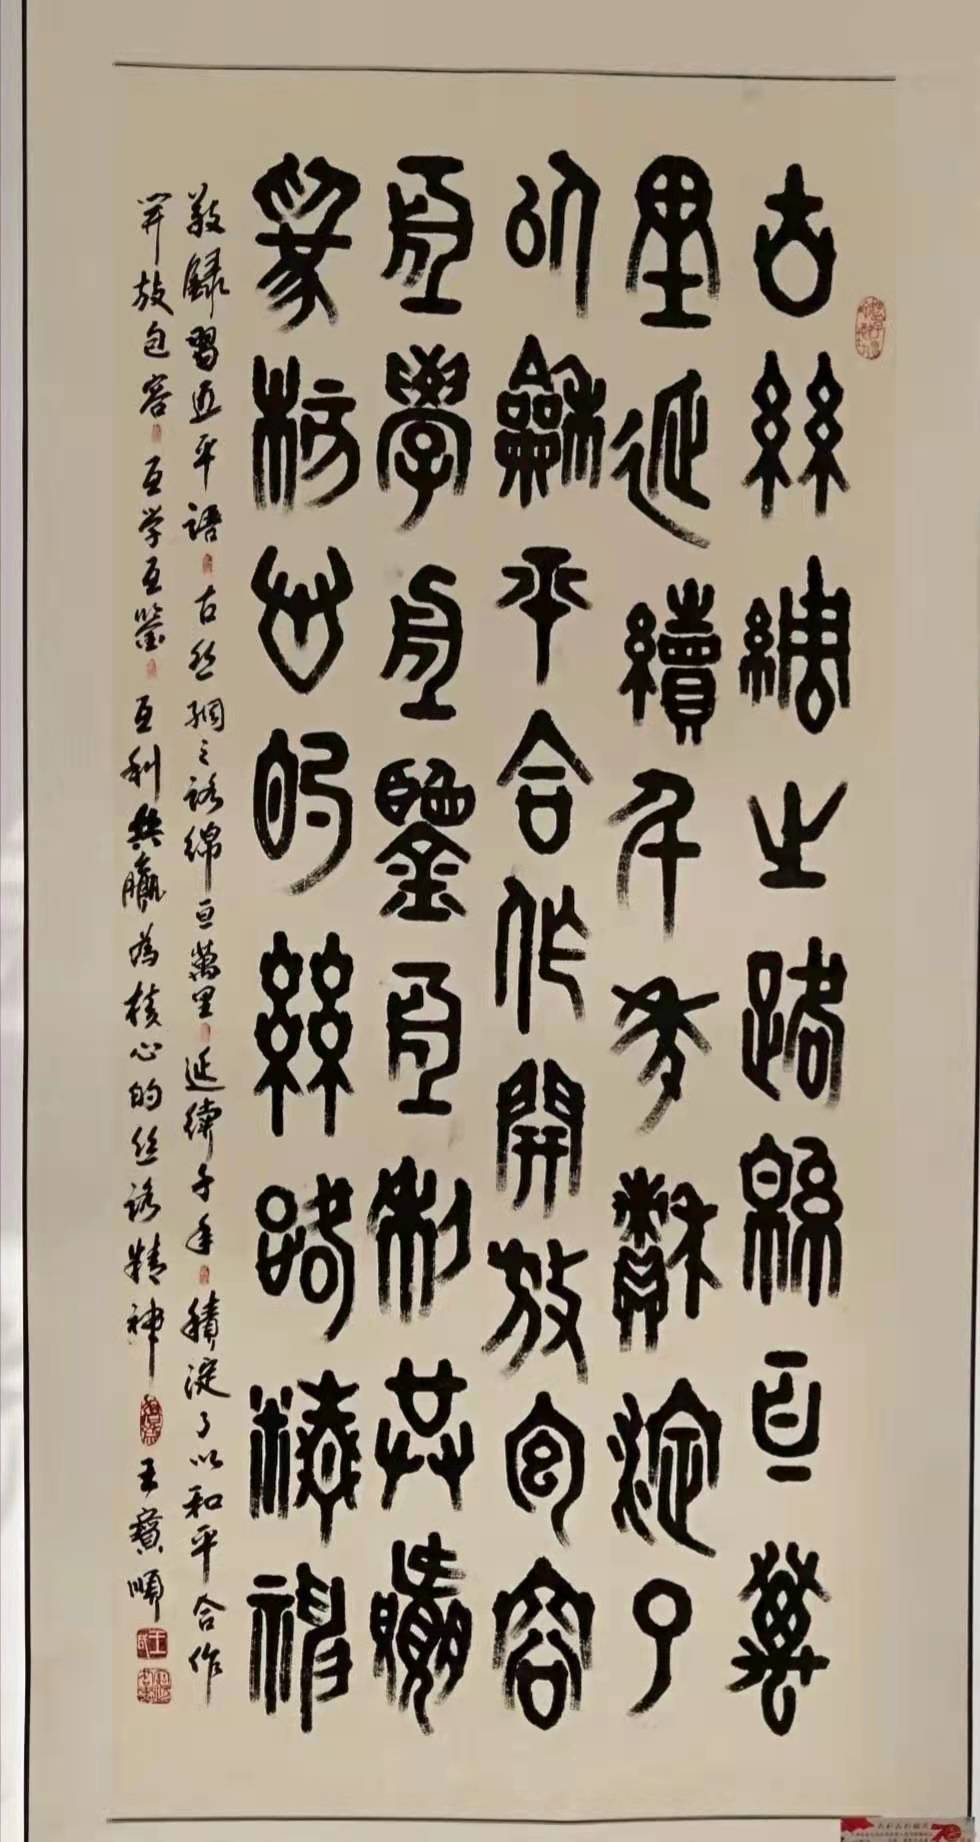 古絲綢之路綿亘萬
里延續千年積淀了
以龢平合作開放包容
互學互鑒互利共贏
為核心的絲路精神
敬録習近平語古丝绸之路綿亘萬里延續千年積淀了以和平合作
開放包容互学互鉴互利共赢為核心的丝路精神王寶順